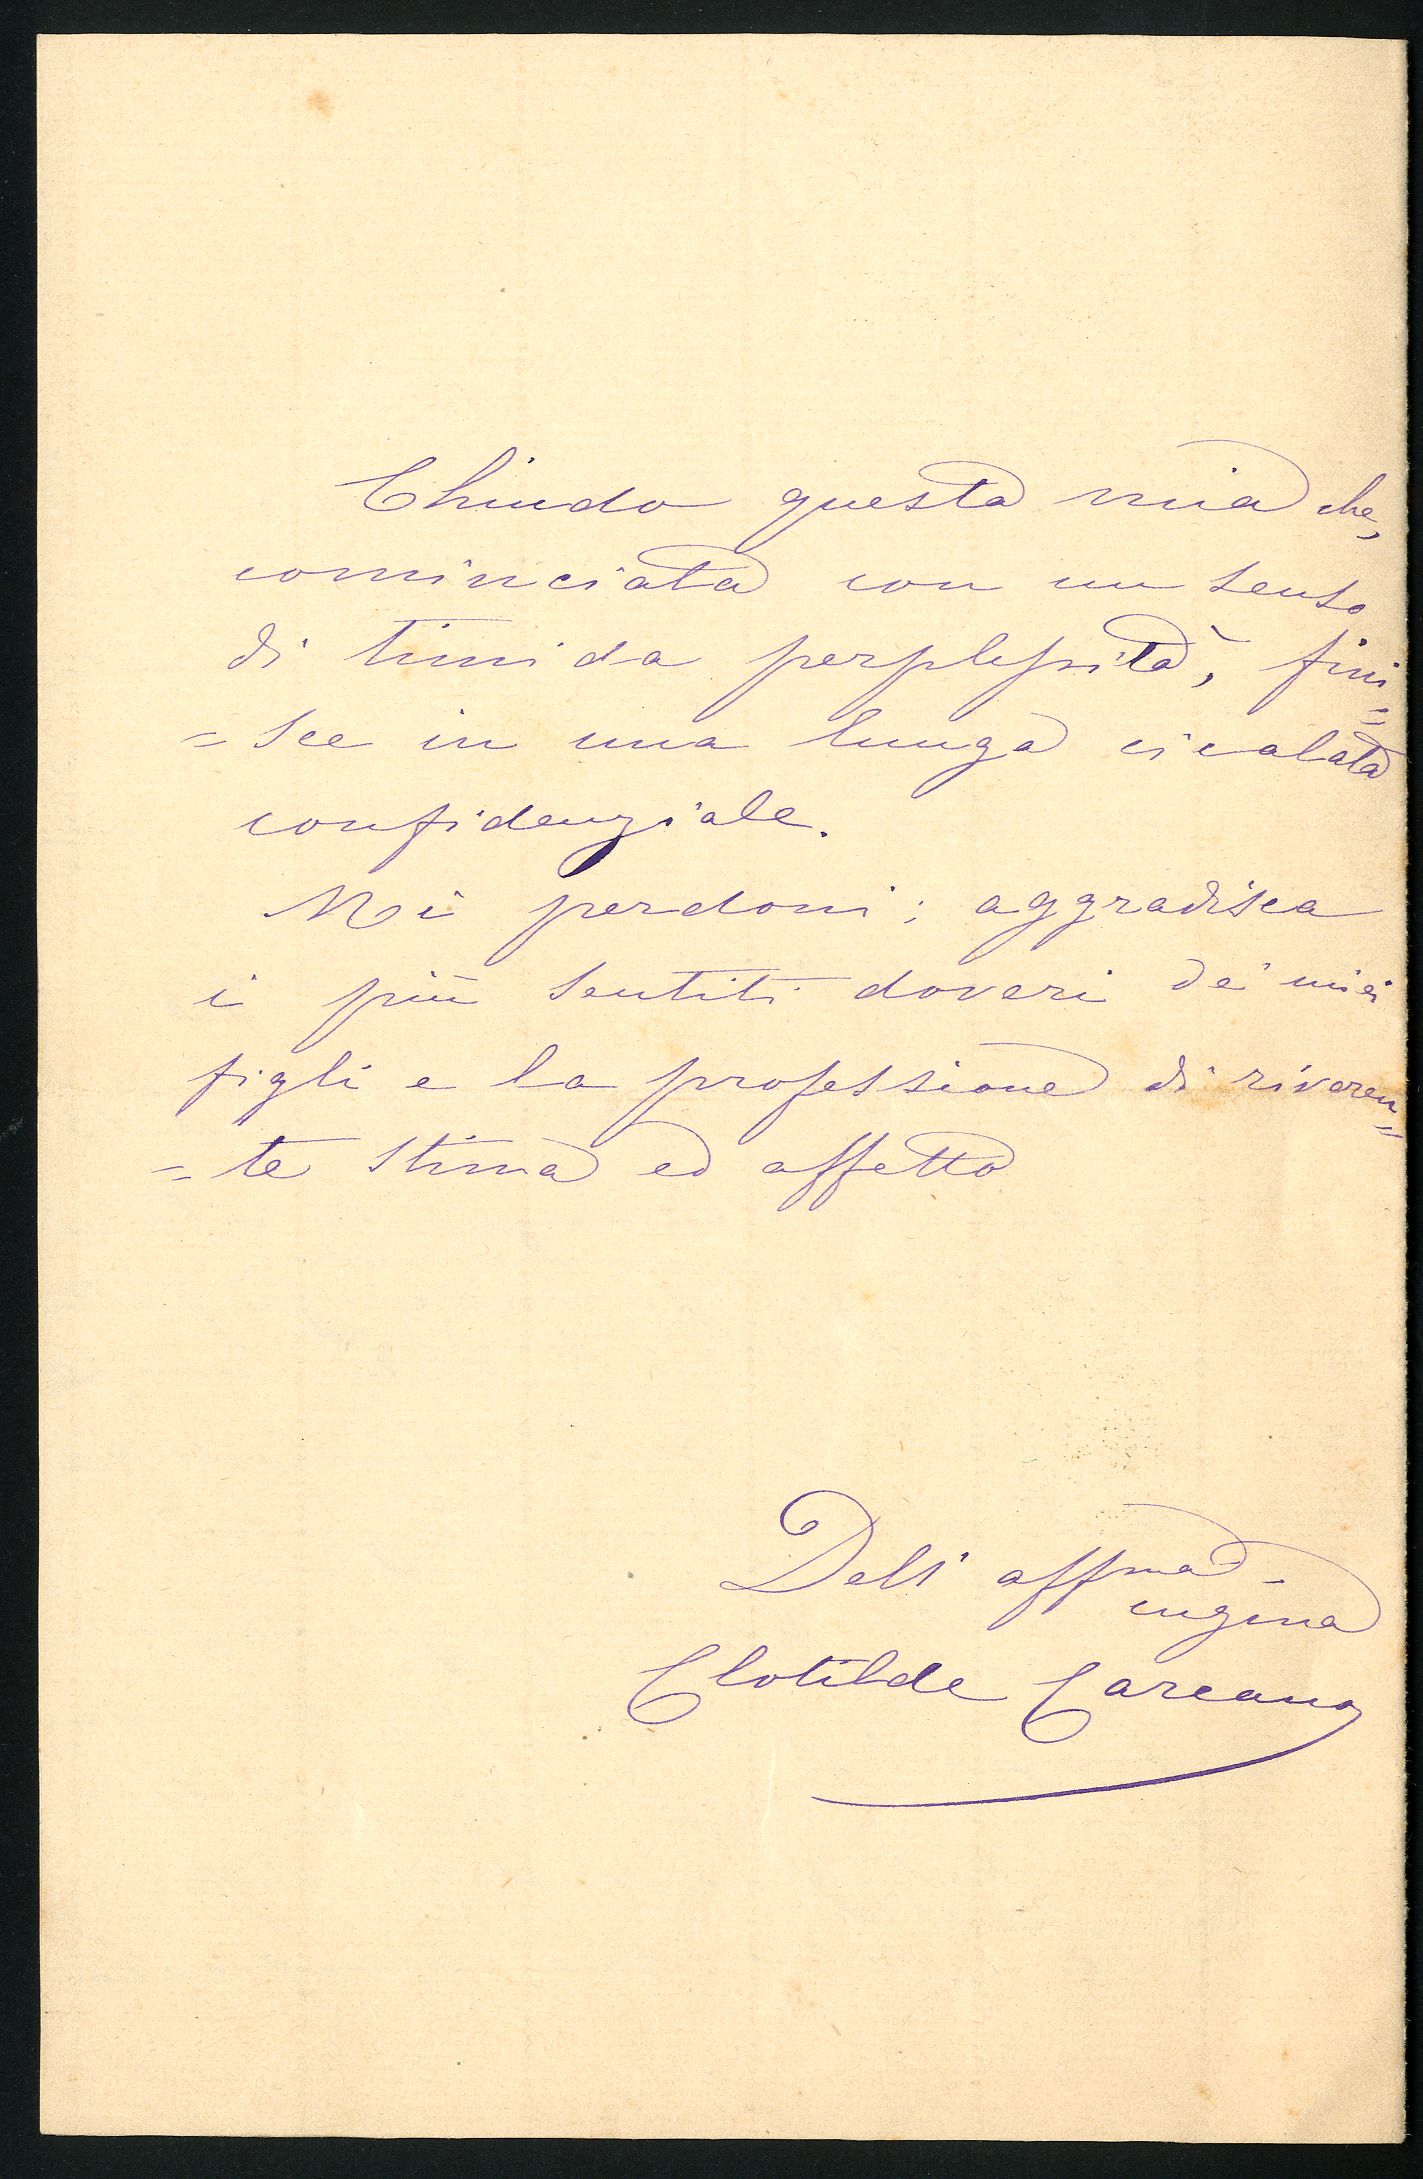 Chiudo questa mia che,
cominciata con un senso
di timida perplessità, fini=
=sce in una lunga cicalata
confidenziale.
Mi perdoni; aggradisca
i più sentiti doveri de' miei
figli e la professione di riveren=
=te stima ed affetto
Dell' affma
cugina
Clotilde Carcano